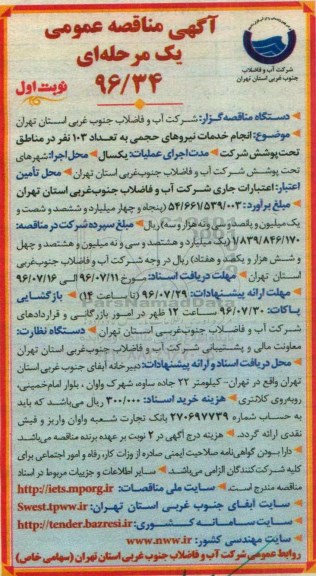 آگهی مناقصه عمومی
یک مرحله‌ای
۹۶/۳۴
نوبت اول
شرکت آب و فاضلاب
جنوب غربی استان تهران
دستگاه مناقصه‌گزار: شرکت آب و فاضلاب جنوب غربی استان تهران
موضوع: انجام خدمات نیروهای حجمی به تعداد ۱۰۳ نفر در مناطق
تحت پوشش شرکت مدت اجرای عملیات: یکسال محل اجرا: شهرهای
تحت پوشش شرکت آب و فاضلاب جنوب‌غربی استان تهران محل تأمین
اعتبار: اعتبارات جاری شرکت آب و فاضلاب جنوب‌غربی استان تهران
مبلغ برآورد: ۵۴/۶۶۱/۵۳۹/۰۰۳ (پنجاه و چهار میلیارد و ششصد و شصت و
یک میلیون و پانصد و سی و نه هزار و سه) ریال مبلغ سپرده شرکت در مناقصه:
۱/۸۳۹/۸۴۶/۱۷۰ (یک میلیارد و هشتصد و سی و نه میلیون و هشتصد و چهل
و شش هزار و یکصد و هفتاد) ریال در وجه شرکت آب و فاضلاب جنوب‌غربی
استان تهران مهلت دریافت اسناد: مورخ ۹۶/۰۷/۱۱ الی ۹۶/۰۷/۱۶
مهلت ارائه پیشنهادات: ۹۶/۰۷/۲۹ (تا ساعت ۱۴) بازگشایی
پاکات: ۹۶/۰۷/۳۰ ساعت ۱۲ ظهر در امور بازرگانی و قراردادهای
شرکت آب و فاضلاب جنوب‌غربی استان تهران دستگاه نظارت:
معاونت مالی و پشتیبانی شرکت آب و فاضلاب جنوب‌غربی استان تهران
محل دریافت اسناد و ارائه پیشنهادات: دبیرخانه آبفای جنوب غربی استان
تهران واقع در تهران- کیلومتر ۲۲ جاده ساوه، شهرک واوان، بلوار امام‌خمینی،
روبه‌روی کلانتری هزینه خرید اسناد: ۳۰۰/۰۰۰ ریال می‌باشد که باید
به حساب شماره ۲۷۰۶۹۷۷۳۹ بانک تجارت شعبه واوان واریز و فیش
نقدی ارائه گردد. هزینه درج آگهی در ۲ نوبت بر عهده برنده مناقصه می‌باشد.
دارا بودن گواهی‌نامه صلاحیت ایمنی صادره از وزات کار، رفاه و امور اجتماعی برای
کلیه شرکت‌کنندگان الزامی می‌باشد سایر اطلاعات و جزییات مربوط در اسناد
مناقصه مندرج است. سایت ملی مناقصات: http://iets.mporg.ir
سایت آبفای جنوب غربی استان تهران: Swest.tpww.ir
سایت سامانه کشوری: http://tender.bazresi.ir
سایت مهندسی کشور: www.nww.ir
روابط عمومی شرکت آب و فاضلاب جنوب غربی استان تهران (سهامی خاص)